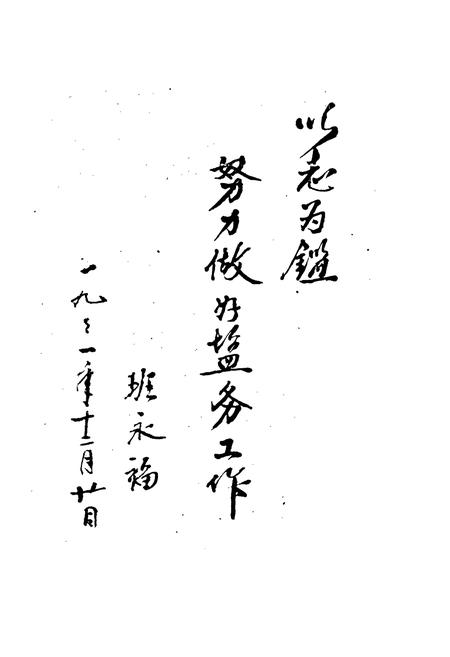 以志为鑑
努力做好盐务工作
班永福
一九々一年十二月廿日